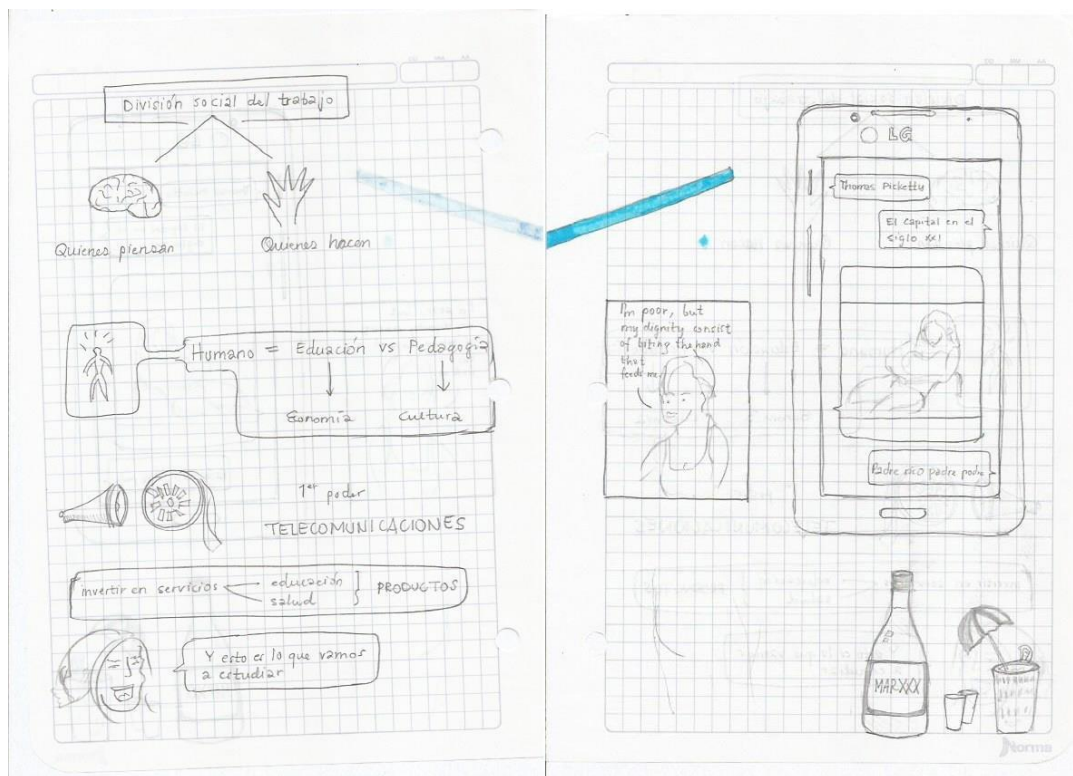 División social del trabajo
Quienes piensan
Quienes hacen
Humano = Eduación vs Pedagogía
Economía
Cultura
1er poder
TELECOMUNICACIONES
invertir en servicios
educación
salud
PRODUCTOS
Y esto es lo que vamos
a estudiar
LG
Thomas Picketty
El capital en el
siglo XXI
I'm poor, but
my dignity consist
of biting the hand
that
feeds me.
Padre rico padre podre
MARXXX
Norma